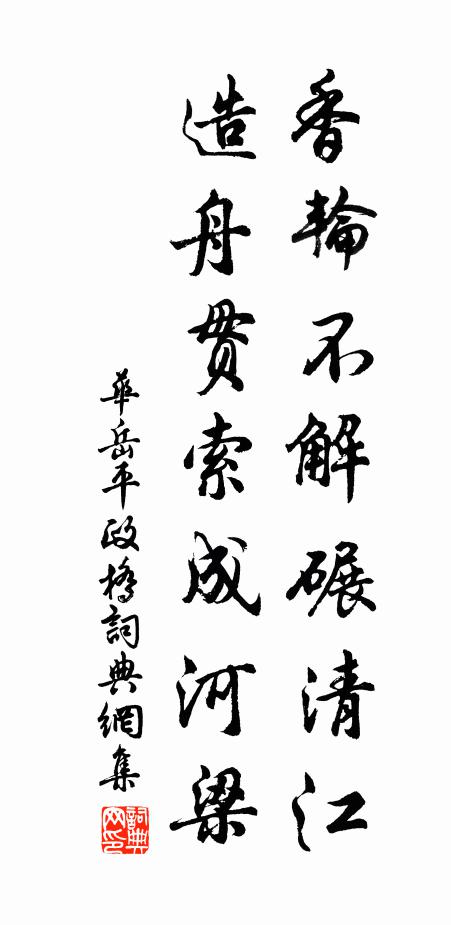 香輪不解碾清江
造舟貫索成河梁
華岳平政橋詞典網集
詞典
網印